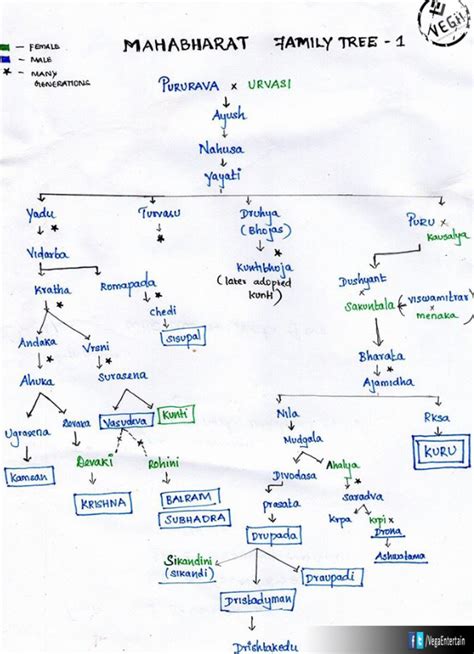 VEGH
MAHABHARAT FAMILY TREE - 1
- FEMALE
- MALE
★ - MANY GENERATIONS
PURURAVA x URVASI
Ayush
Nahusa
Yayati
Yadu
Turvasu
Druhya
(Bhojas)
PURU x
Kausalya
Vidarba
Kuntibhoja
(later adopted
Kunti)
Kratha
Romapada
Dushyant
x
Sakuntala (viswamitrar x
menaka)
Chedi
Sisupal
Andaka
Vreni
Bharata
Ajamidha
Ahuka
Surasena
Ugrasena
Devaka
Vasudeva
Kunti
Nila
Rksa
Mudgala
KURU
Kamsan
Devaki
Rohini
Divodasa
Ahalya
KRISHNA
BALRAM
SUBHADRA
Prasata
Saradva
Drupada
Krpa
Krpi x
Drona
Ashwatama
Sikandini
(Sikandi)
Draupadi
Dristadyman
Drishtakedu
f t /VegaEntertain